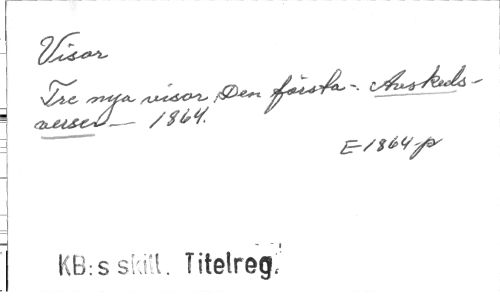 Visor
Tre nya visor, Den första-. Avskeds-
verser — 1864.
E 1864 p
KB:s skill. Titelreg.